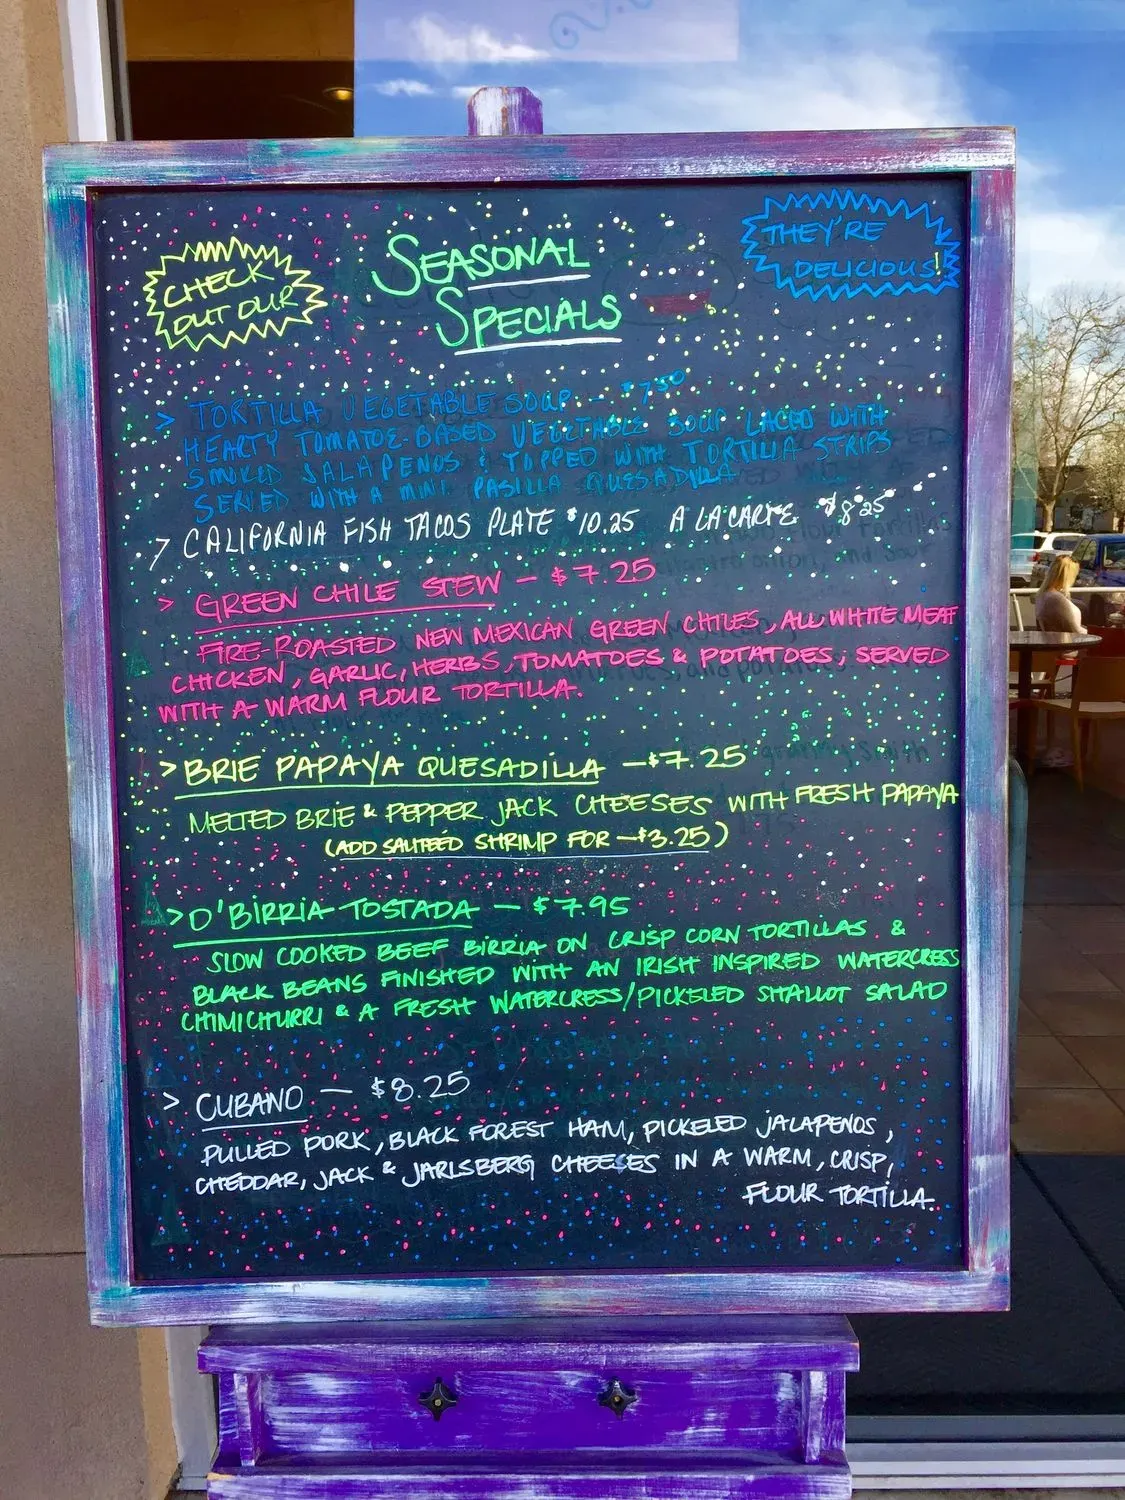 CHECK
OUT OUR
SEASONAL
SPECIALS
THEY'RE
DELICIOUS!
> TORTILLA VEGETABLE SOUP - $7.50
HEARTY TOMATOE-BASED VEGETABLE SOUP LACED WITH
SMOKED JALAPENOS & TOPPED WITH TORTILLA STRIPS
SERVED WITH A MINI PASILLA QUESADILLA
> CALIFORNIA FISH TACOS PLATE $10.25 A LA CARTE $8.25
> GREEN CHILE STEW - $7.25
FIRE-ROASTED NEW MEXICAN GREEN CHILES, ALL WHITE MEAT
CHICKEN, GARLIC, HERBS, TOMATOES & POTATOES, SERVED
WITH A WARM FLOUR TORTILLA.
> BRIE PAPAYA QUESADILLA - $7.25
MELTED BRIE & PEPPER JACK CHEESES WITH FRESH PAPAYA
(ADD SAUTEED SHRIMP FOR - $3.25)
> O'BIRRIA TOSTADA - $7.95
SLOW COOKED BEEF BIRRIA ON CRISP CORN TORTILLAS &
BLACK BEANS FINISHED WITH AN IRISH INSPIRED WATERCRESS
CHIMICHURRI & A FRESH WATERCRESS/PICKELED SHALLOT SALAD
> CUBANO - $8.25
PULLED PORK, BLACK FOREST HAM, PICKELED JALAPENOS,
CHEDDAR, JACK & JARLSBERG CHEESES IN A WARM, CRISP,
FLOUR TORTILLA.